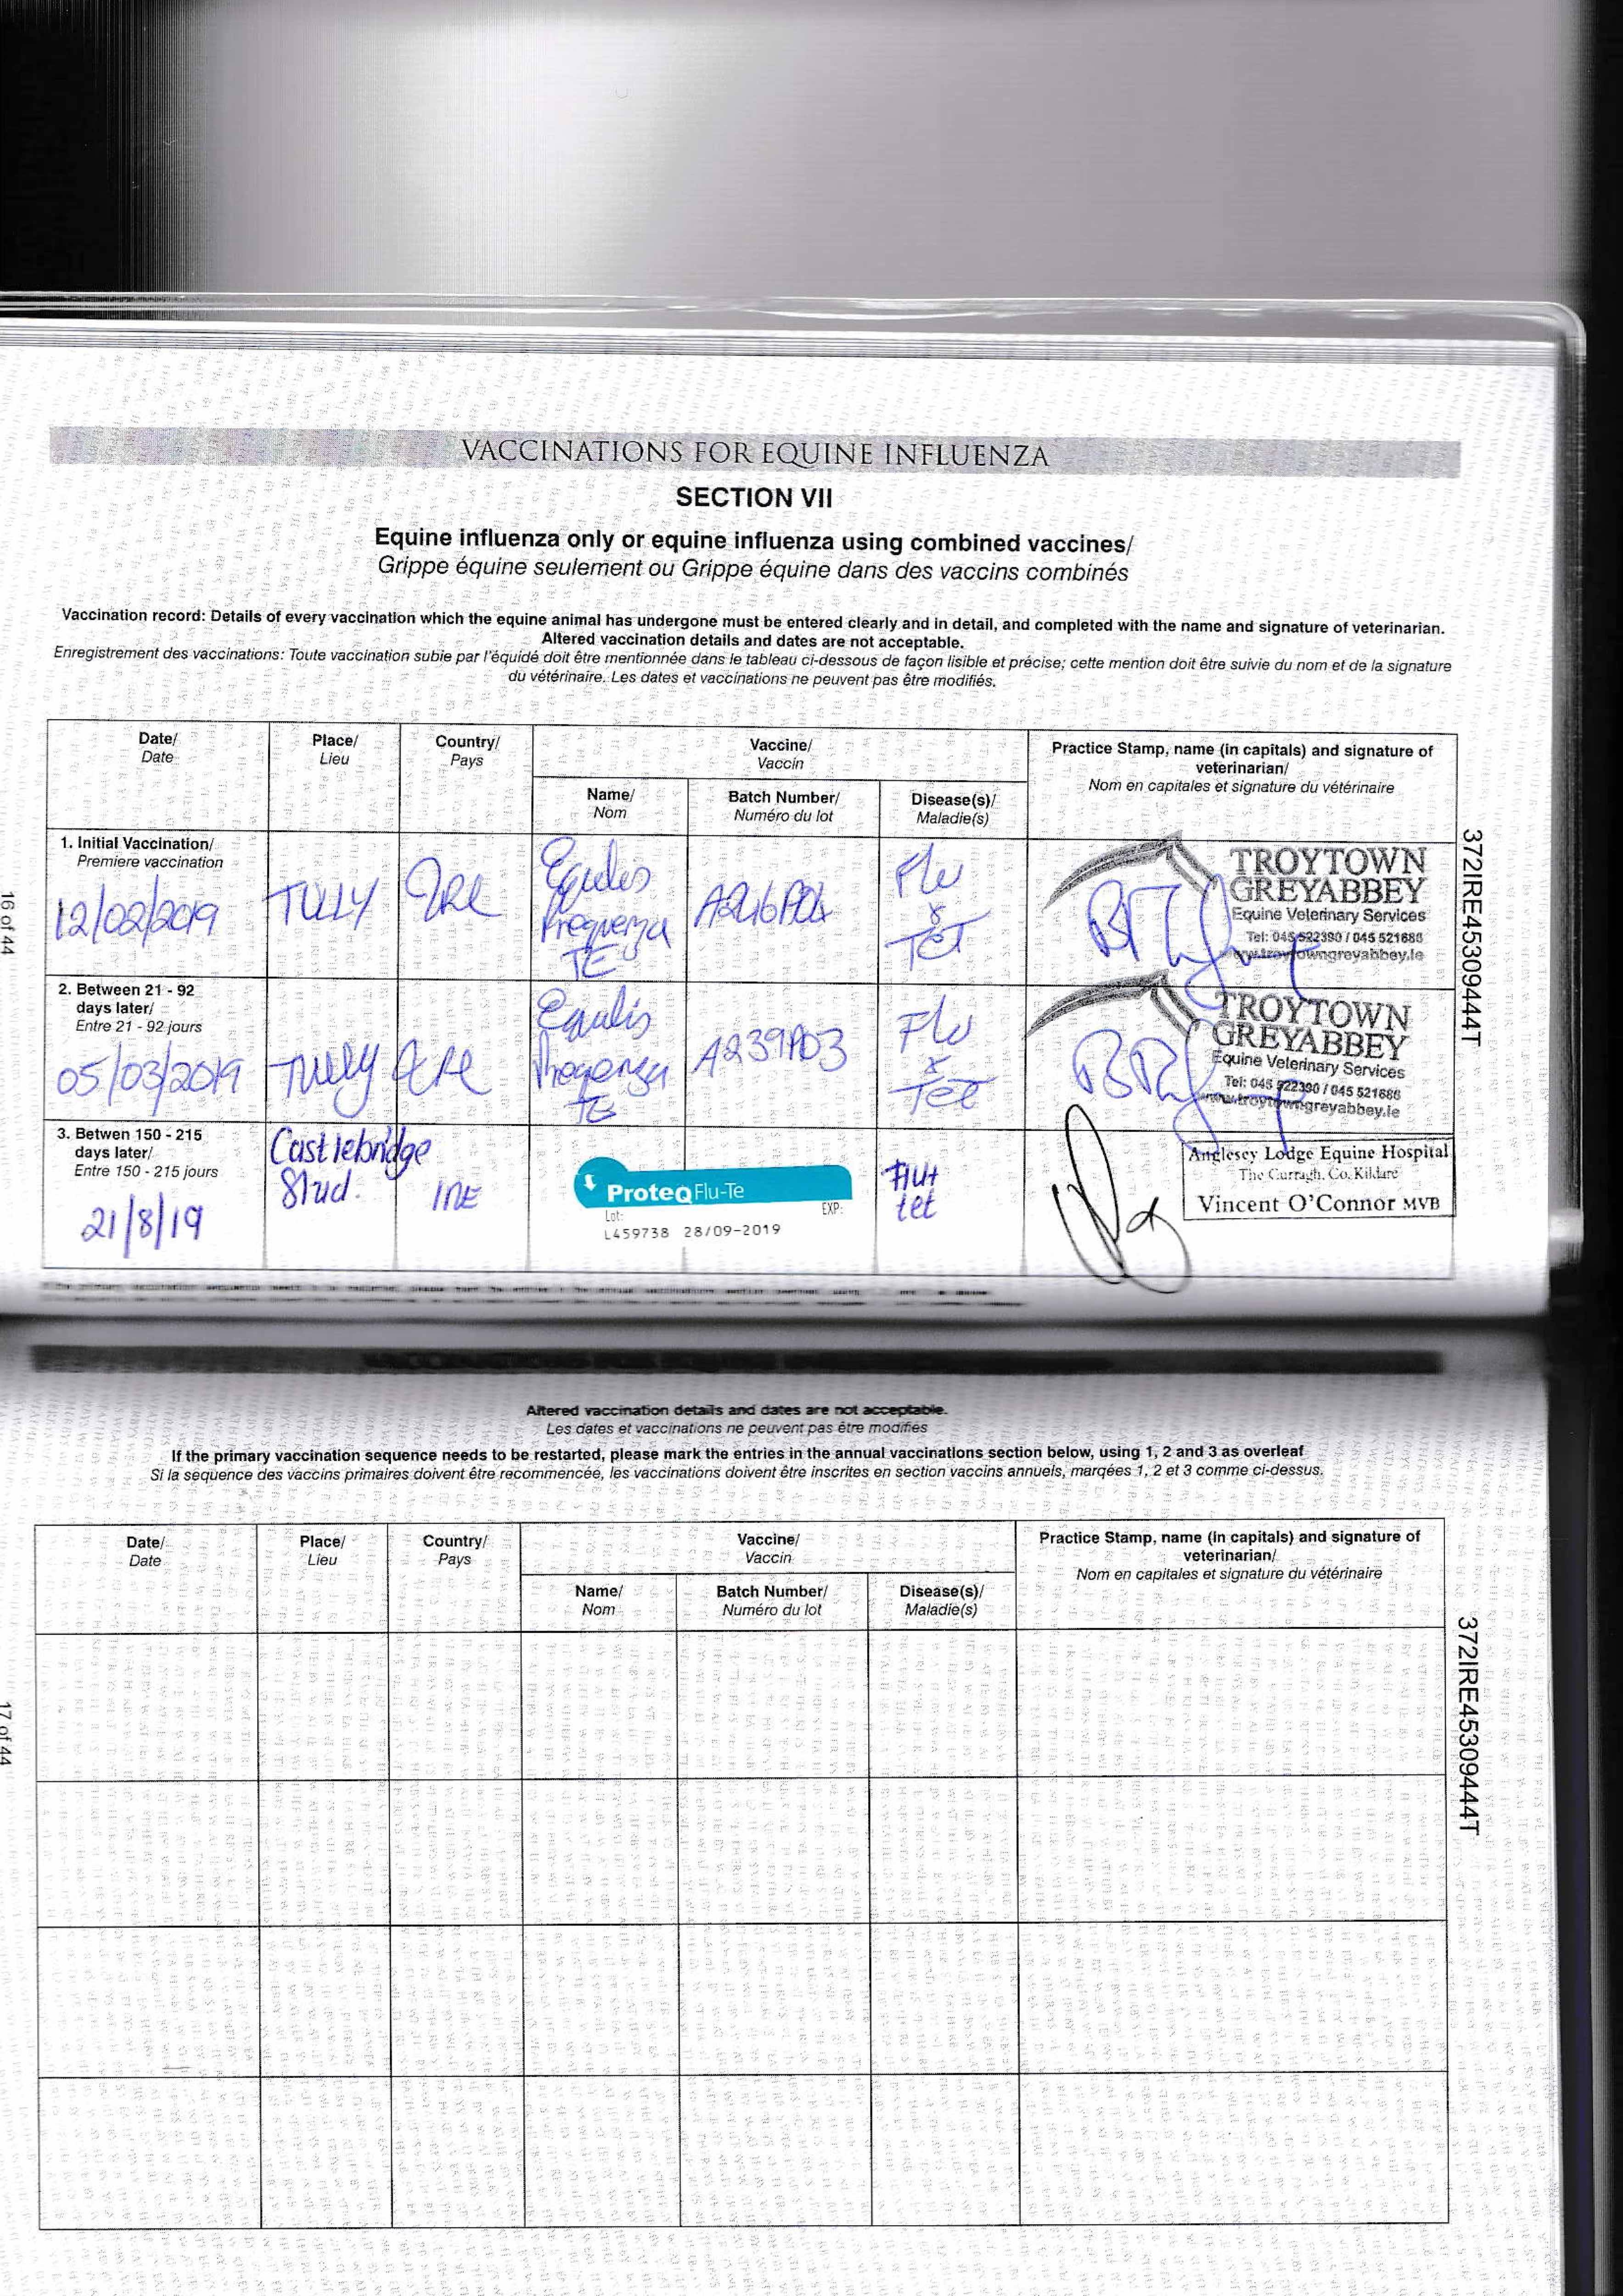 VACCINATIONS FOR EQUINE INFLUENZA
SECTION VII
Equine influenza only or equine influenza using combined vaccines/
Grippe équine seulement ou Grippe équine dans des vaccins combinés
Vaccination record: Details of every vaccination which the equine animal has undergone must be entered clearly and in detail, and completed with the name and signature of veterinarian.
Altered vaccination details and dates are not acceptable.
Enregistrement des vaccinations: Toute vaccination subie par l'équidé doit être mentionnée dans le tableau ci-dessous de façon lisible et précise; cette mention doit être suivie du nom et de la signature
du vétérinaire. Les dates et vaccinations ne peuvent pas être modifiés.
Date/
Date
Place/
Lieu
Country/
Pays
Vaccine/
Vaccin
Name/
Nom
Batch Number/
Numéro du lot
Disease(s)/
Maladie(s)
Practice Stamp, name (in capitals) and signature of
veterinarian/
Nom en capitales et signature du vétérinaire
1. Initial Vaccination/
Premiere vaccination
12/02/2019
TULLY
IRE
Equilis
Prequenza
TE
Flu
&
Tet
TROYTOWN
GREYABBEY
Equine Veterinary Services
Tel: 045 522390 / 045 521686
www.troytowngreyabbey.ie
2. Between 21 - 92
days later/
Entre 21 - 92 jours
05/03/2019
Tully
IRE
Equilis
Prequenza
TE
A239A03
Flu
&
Tet
TROYTOWN
GREYABBEY
Equine Veterinary Services
Tel: 045 522390 / 045 521686
www.troytowngreyabbey.ie
3. Betwen 150 - 215
days later/
Entre 150 - 215 jours
21/8/19
Castlebridge
Stud.
IRE
ProteqFlu-Te
Lot:
EXP:
L459738 28/09-2019
Flu+
tet
Anglesey Lodge Equine Hospital
The Curragh, Co. Kildare
Vincent O'Connor MVB
372IRE45309444T
16 of 44
Altered vaccination details and dates are not acceptable.
Les dates et vaccinations ne peuvent pas être modifiés
If the primary vaccination sequence needs to be restarted, please mark the entries in the annual vaccinations section below, using 1, 2 and 3 as overleaf
Si la séquence des vaccins primaires doivent être recommencée, les vaccinations doivent être inscrites en section vaccins annuels, marqées 1, 2 et 3 comme ci-dessus.
Date/
Date
Place/
Lieu
Country/
Pays
Vaccine/
Vaccin
Name/
Nom
Batch Number/
Numéro du lot
Disease(s)/
Maladie(s)
Practice Stamp, name (in capitals) and signature of
veterinarian/
Nom en capitales et signature du vétérinaire
372IRE45309444T
17 of 44